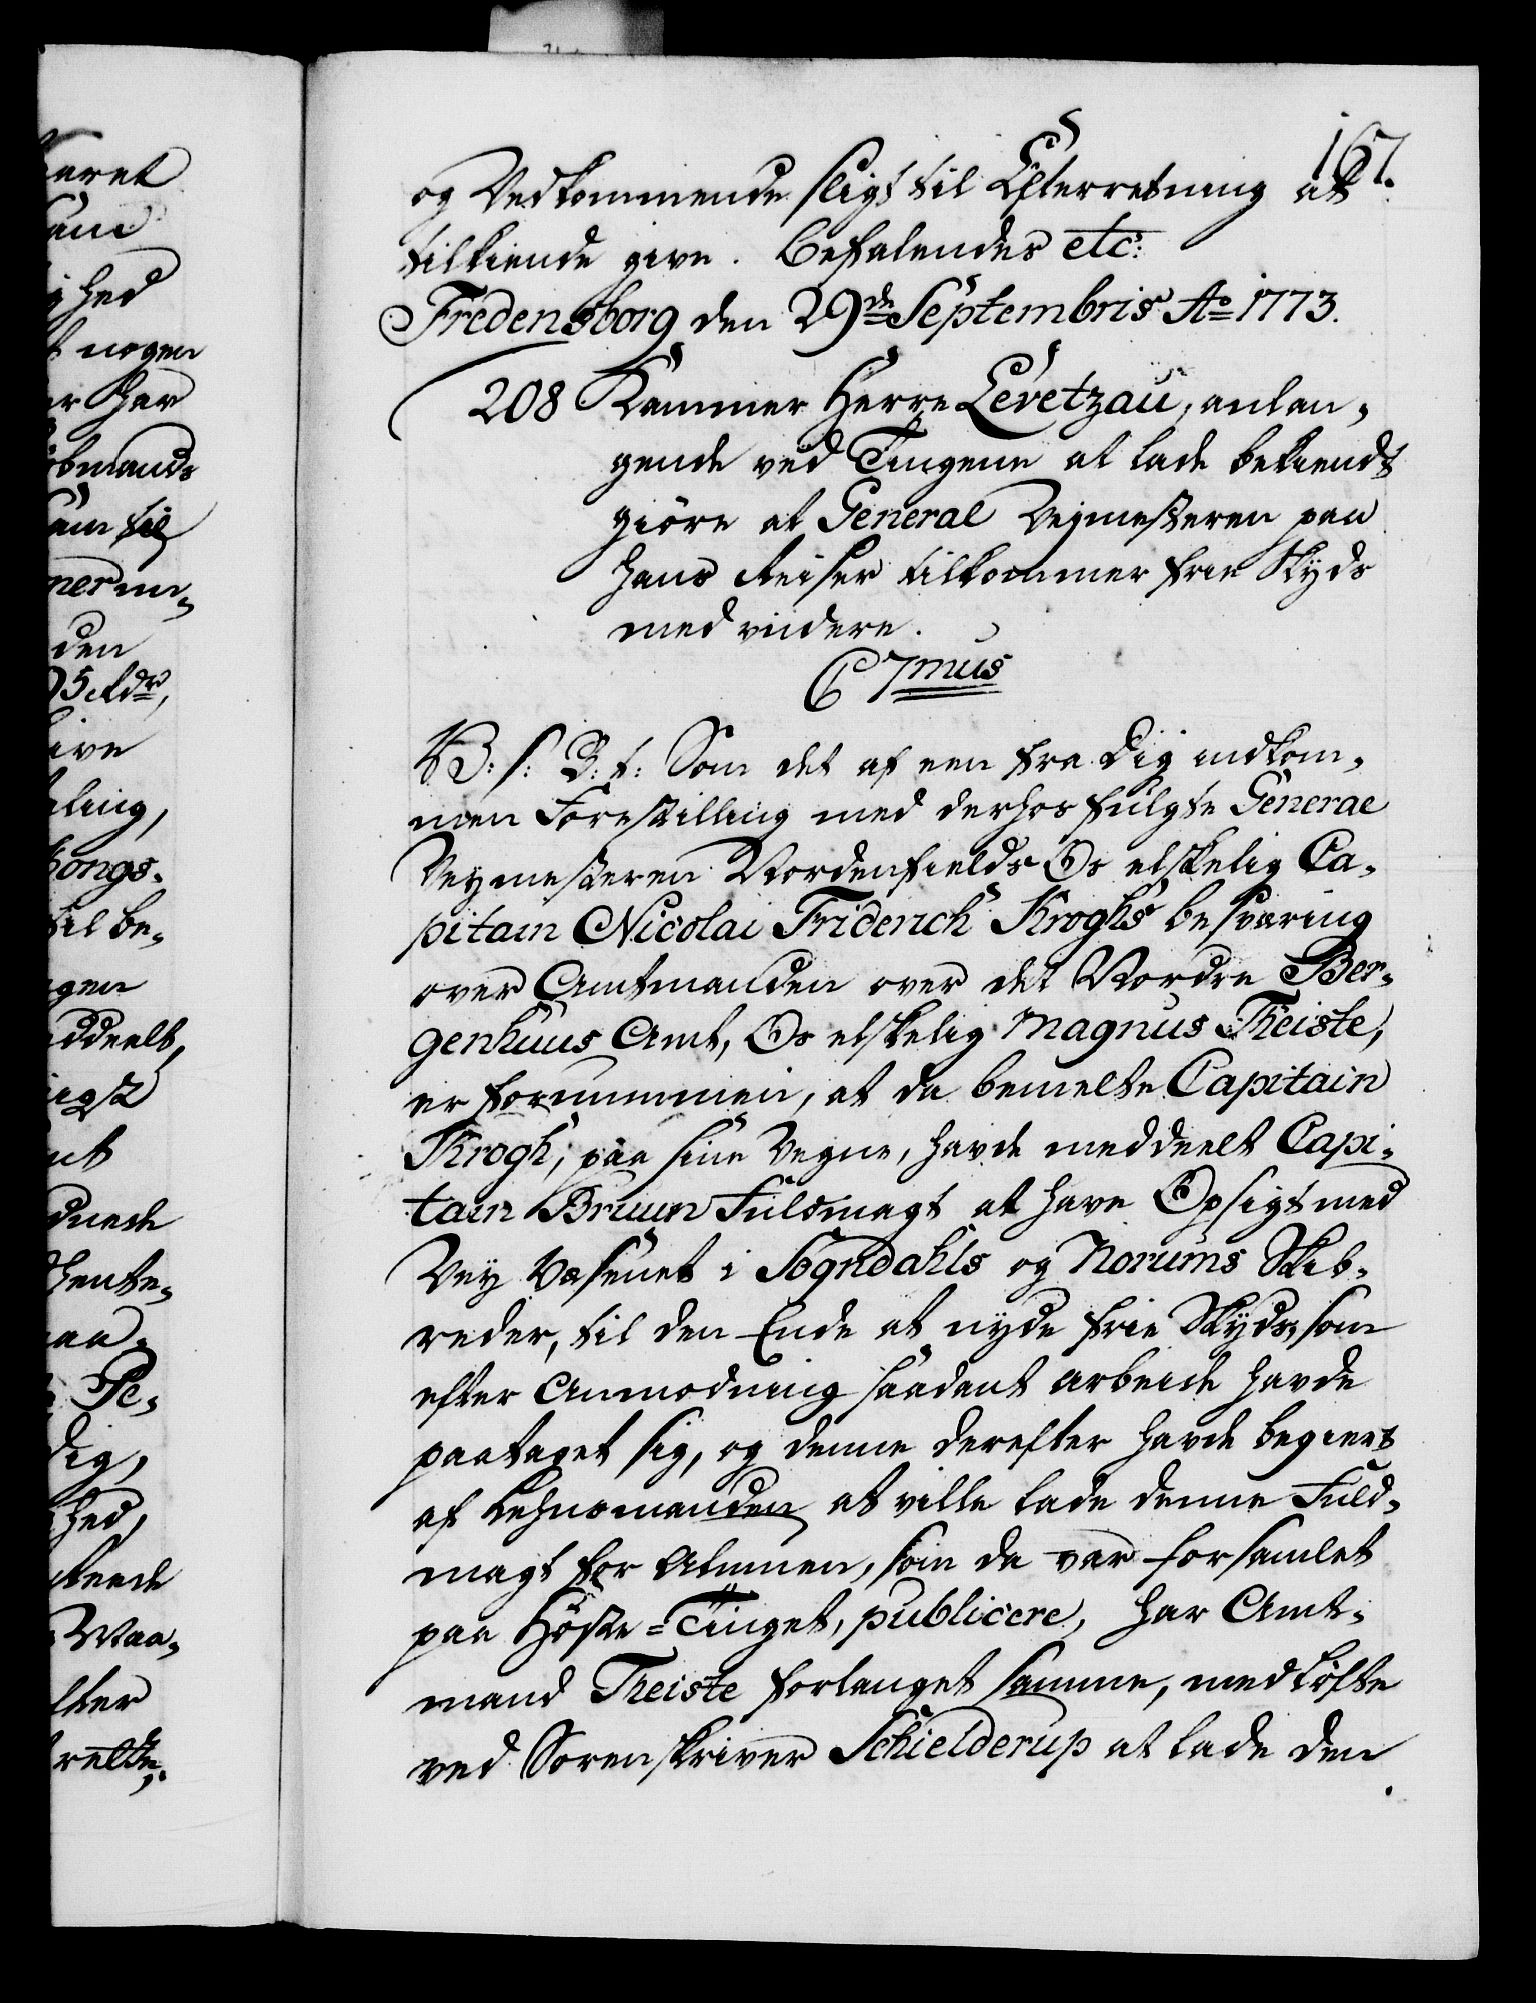 167.
og Vedkommende sligt til Efterretning at
tilkiende give. Befalendes etc:
Fredensborg den 29de Septembris Ao 1773.
208 Kammer Herre Levetzau, anlan-
gende ved Tingene at lade bekiendt
giöre at General Vejmesteren paa
hans Reiser tilkommer frie Skyds
med videre.
C 7mus
V: s: B: t: Som det af een fra Dig indkom-
men Forestilling med derhos fulgte General
Veymesteren Nordenfields Os elskelig Ca-
pitain Nicolai Friderich Kroghs besværing
over Amtmanden over det Nordre Ber-
genhuus Amt, Os elskelig Magnus Theiste,
er fornummen, at da bemelte Capitain
Krogh, paa sine Vegne, havde meddeelt Capi-
tain Bruun Fuldmagt at have Opsigt med
Vey Væsenet i Sogndahls og Norums Skib-
reder, til den Ende at nyde frie Skyds, som
efter Anmodning saadant arbeide havde
paataget sig, og denne derefter havde begiert
af Lehnsmanden at ville lade denne Fuld-
magt for Almuen, som da var forsamlet
paa Höste-Tinget, publicere, har Amt-
mand Theiste forlanget samme, med Löfte
ved Sorenskriver Schielderup at lade den
aret
hed
nogen
er har
bmands
til
ner
den
95 Rdr,
ive
ling,
Kongs-
til be-
gen
ddeelt,
dig,
hed,
Maa-
fter